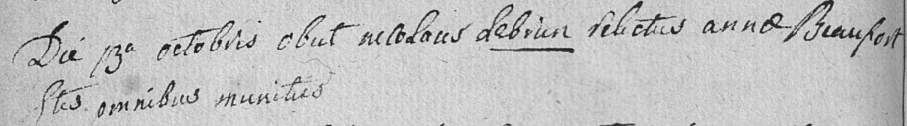 Die 13a octobris obiit nicolaus debrun relictus annæ Beaufort
Stis omnibus munitus